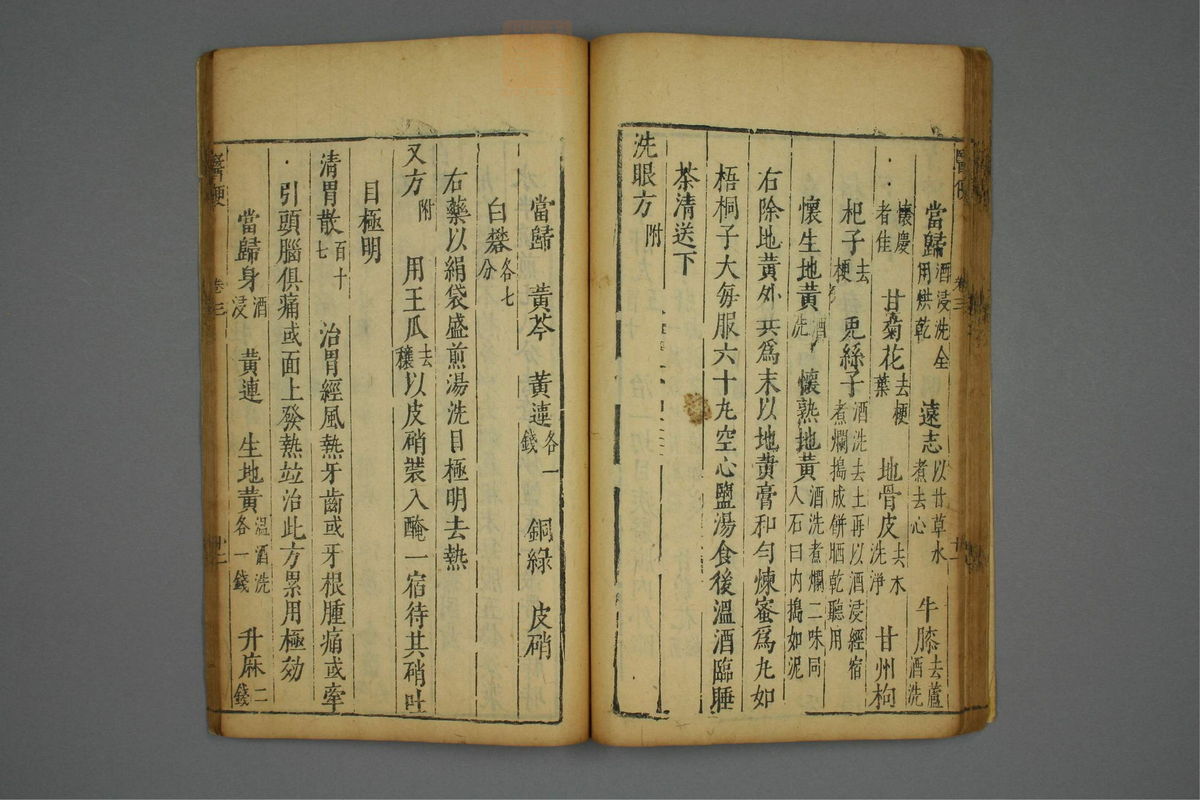 當歸酒浸洗全用烘乾 遠志以甘草水煮去心 牛膝去蘆酒洗
懷慶者佳 甘菊花去梗葉 地骨皮去木洗淨 甘州枸
杞子去梗 兎絲子酒洗去土再以酒浸經宿煮爛搗成餅晒乾聽用
懷生地黃酒洗 懷熟地黃酒洗煮爛二味同入石臼內搗如泥
右除地黃外共爲末以地黃膏和勻煉蜜爲丸如
梧桐子大每服六十丸空心鹽湯食後溫酒臨睡
茶清送下
洗眼方附
當歸 黃芩 黃連各一錢 銅綠 皮硝
白礬各七分
右藥以絹袋盛煎湯洗目極明去熱
又方附 用王瓜去穰以皮硝裝入醃一宿待其硝吐
目極明
清胃散百十七 治胃經風熱牙齒或牙根腫痛或牽
引頭腦俱痛或面上發熱竝治此方累用極効
當歸身酒浸 黃連 生地黃溫酒洗各一錢 升麻二錢
醫便 卷三